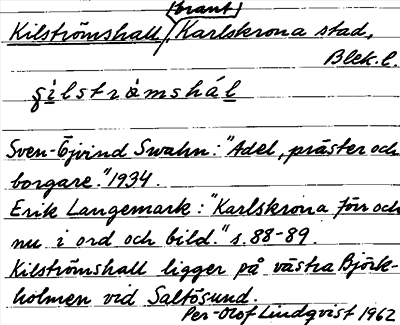 (brant)
Kilströmshall, Karlskrona stad,
Blek.l.
Sven-Öjvind Swahn: "Adel, präster och
borgare." 1934.
Erik Langemark: "Karlskrona förr och
nu i ord och bild." s. 88-89.
Kilströmshall ligger på västra Björk-
holmen vid Saltösund.
Per-Olof Lindqvist 1962